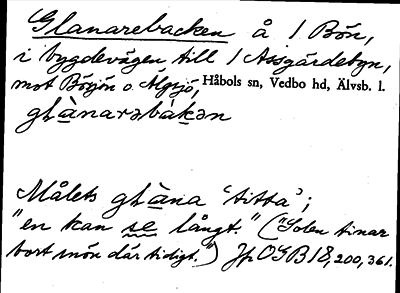 Glanarebacken å 1 Bön,
i bygdevägen till 1 Assgärdebyn,
mot Börjön o. Algsjö, Håbols sn, Vedbo hd, Älvsb. l.
Målets glàna 'titta';
"en kan se långt." ("Solen tinar
bort snön där tidigt.") Jfr OGB 18, 200, 361.